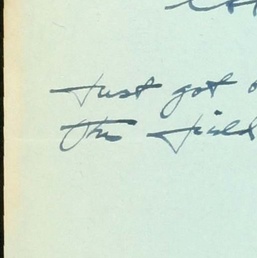 Just got
the field